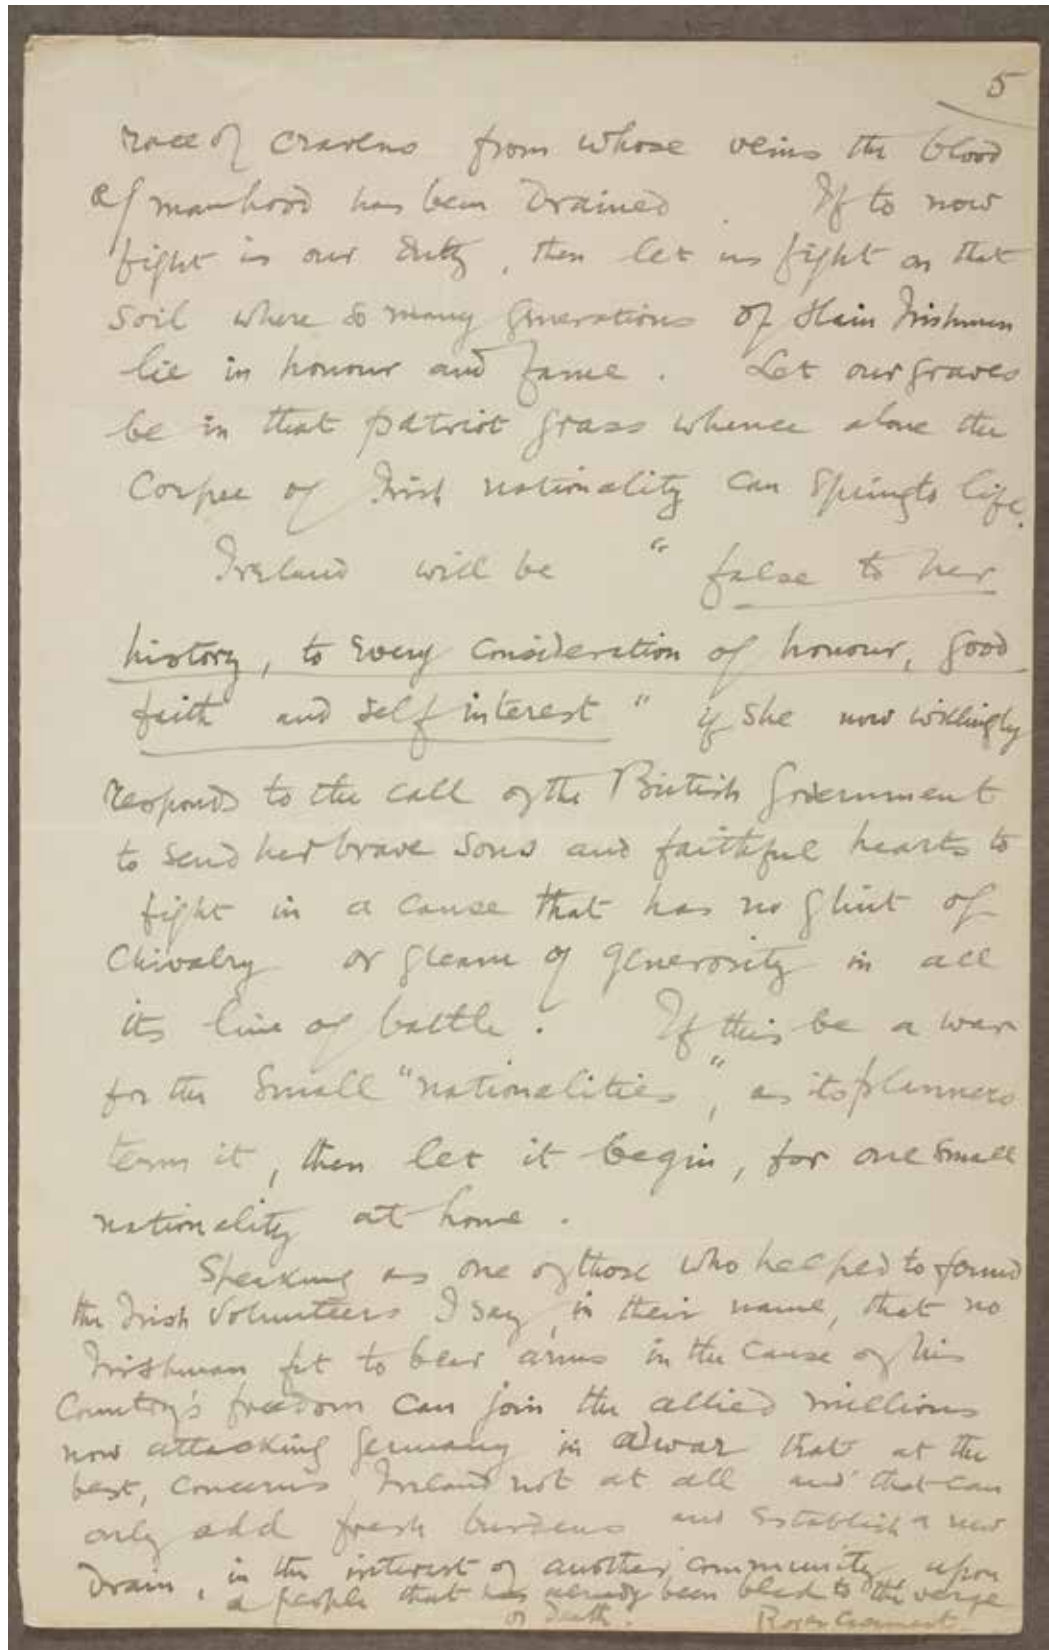 5
race of cravens from whose veins the blood
of manhood has been drained. If to now
fight is our duty, then let us fight on that
soil where so many generations of slain Irishmen
lie in honour and fame. Let our graves
be in that patriot grass whence alone the
Corpse of Irish nationality can spring to life.
Ireland will be "false to her
history, to every consideration of honour, good
faith and self interest" if she now willingly
responds to the call of the British Government
to send her brave sons and faithful hearts to
fight in a cause that has no glint of
Chivalry or gleam of generosity in all
its line of battle. If this be a war
for the small "nationalities", as its planners
term it, then let it begin, for one small
nationality at home.
Speaking as one of those who helped to found
the Irish Volunteers I say, in their name, that no
Irishman fit to bear arms in the cause of his
Country's freedom can join the allied millions
now attacking Germany in a war that at the
best, concerns Ireland not at all and that can
only add fresh burdens and establish a new
drain, in the interest of another community, upon
a people that has already been bled to the verge
of death.
Roger Casement.